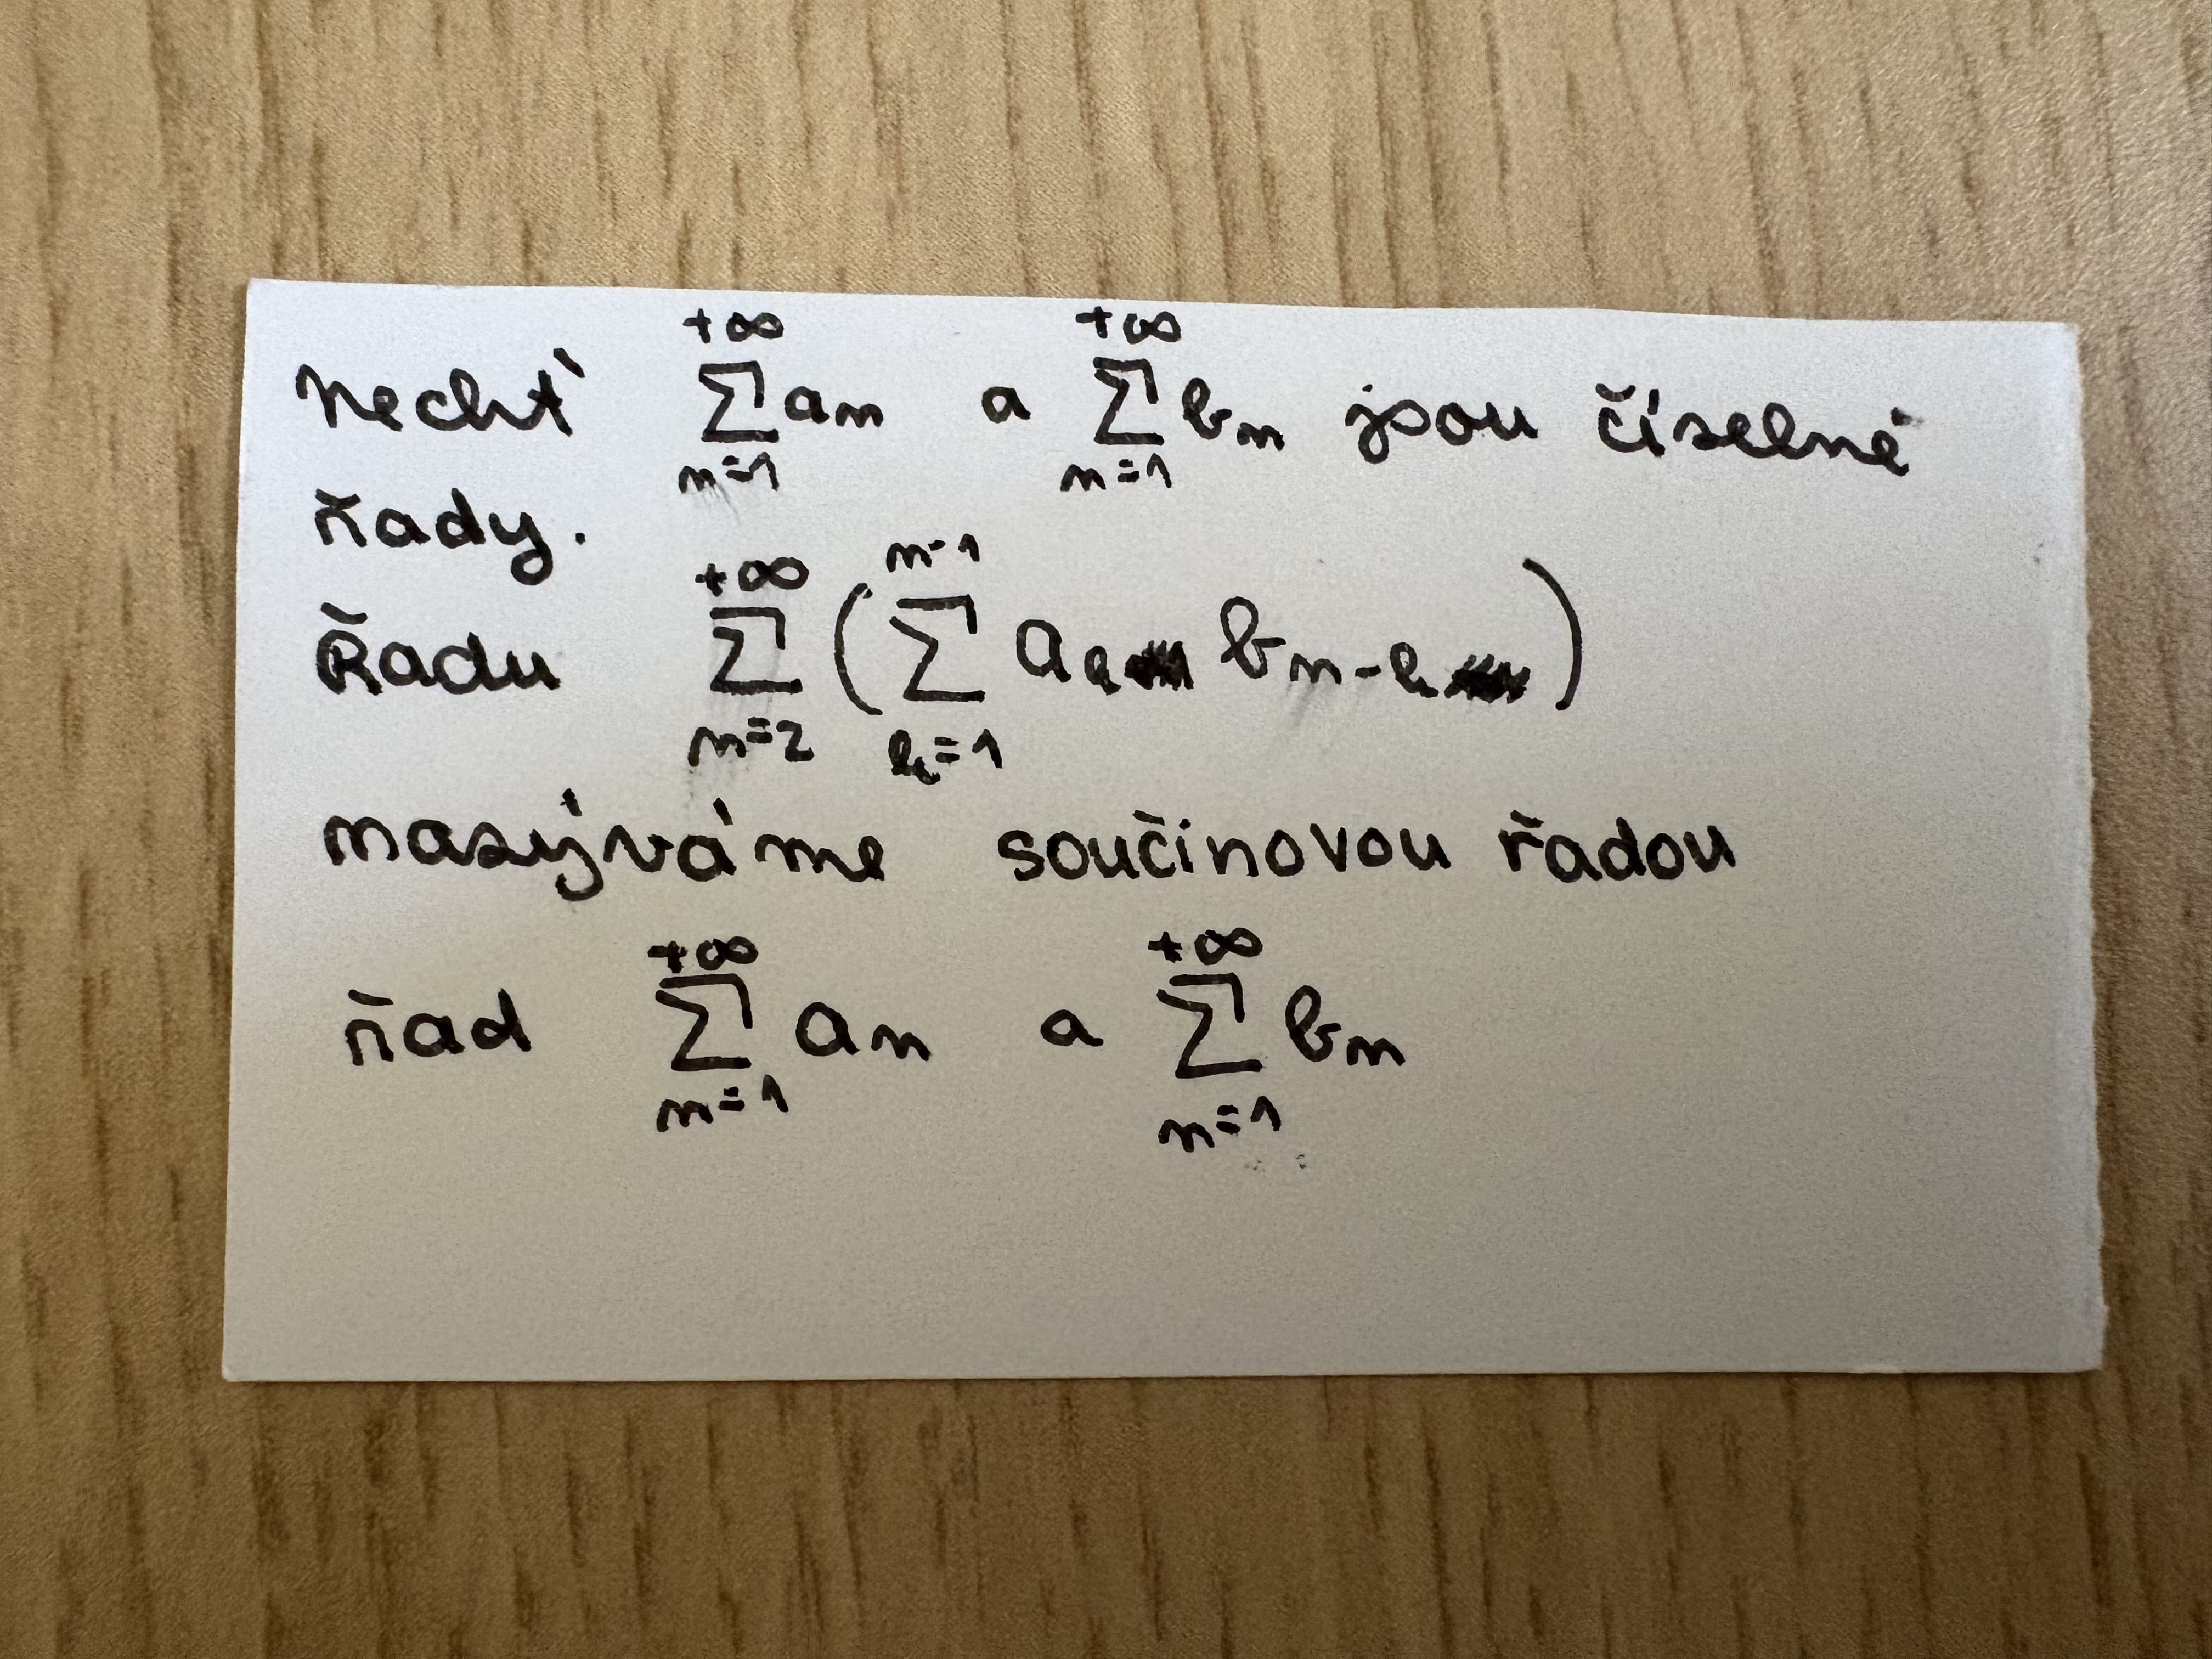 Nechť $\sum_{n=1}^{+\infty} a_n$ a $\sum_{n=1}^{+\infty} b_n$ jsou číselné
řady.
Řadu $\sum_{n=2}^{+\infty} \left( \sum_{k=1}^{n-1} a_k b_{n-k} \right)$
nazýváme součinovou řadou
řad $\sum_{n=1}^{+\infty} a_n$ a $\sum_{n=1}^{+\infty} b_n$